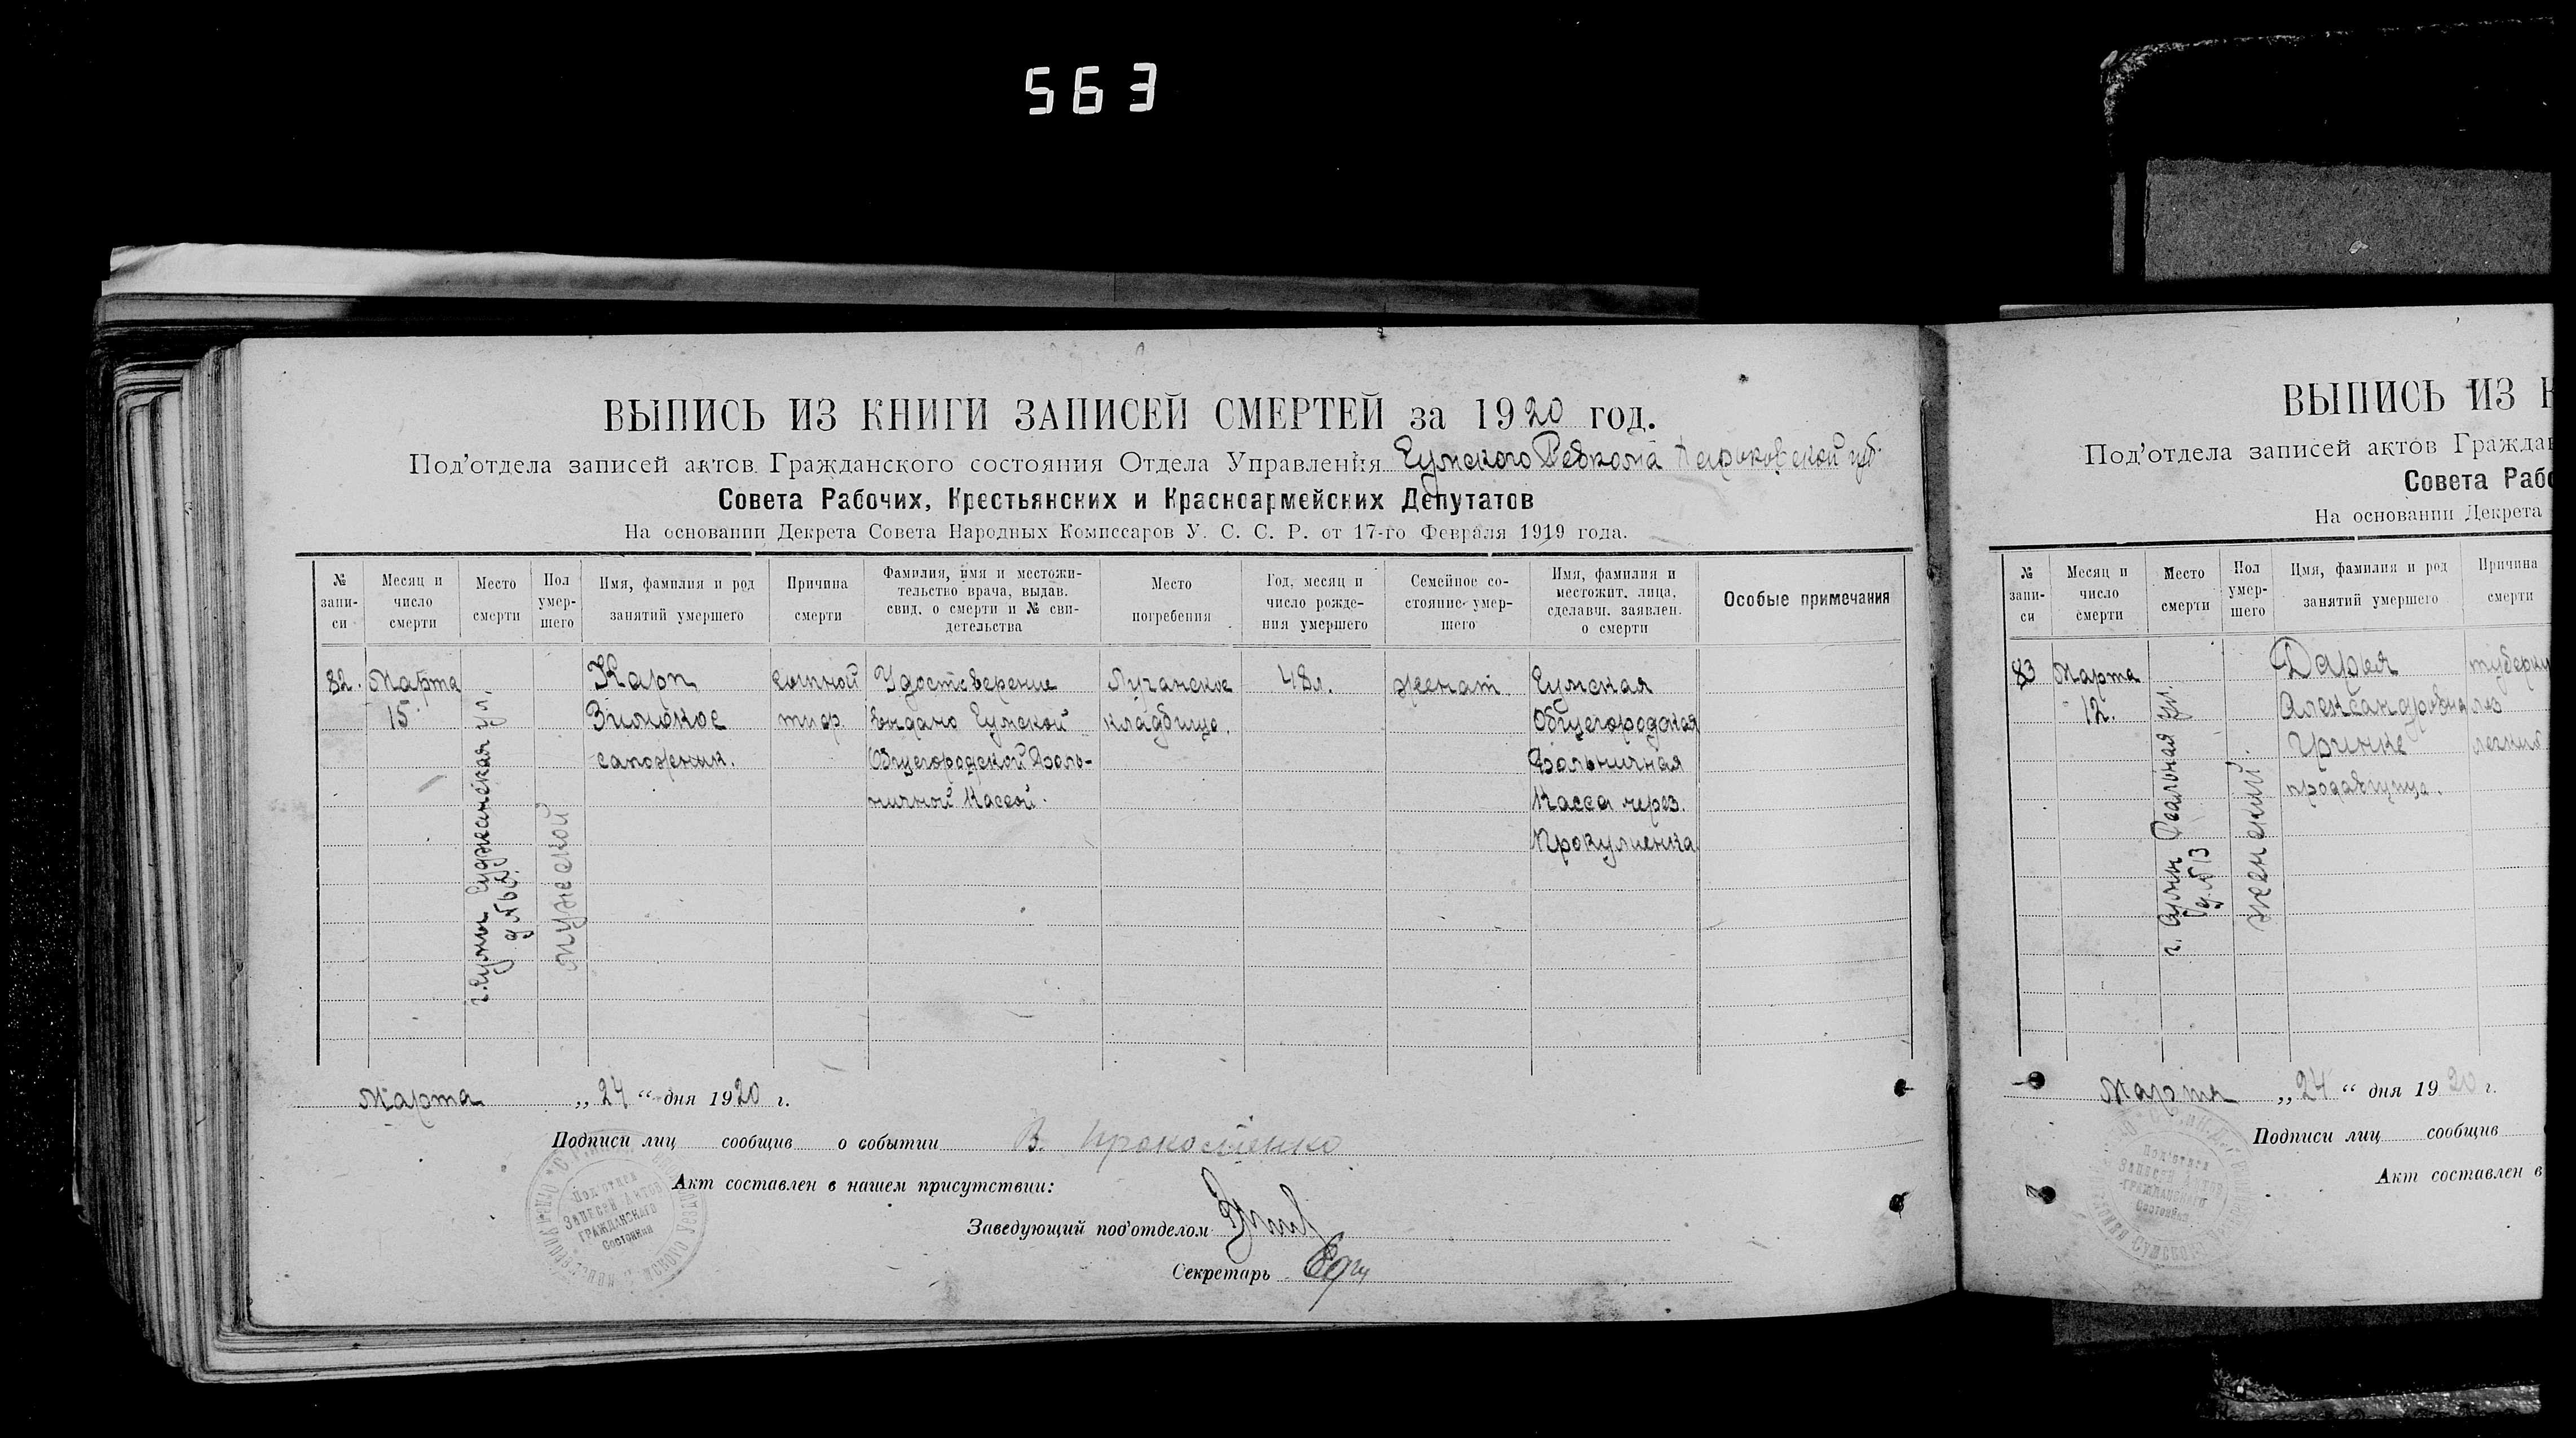 563
ВЫПИСЬ ИЗ КНИГИ ЗАПИСЕЙ СМЕРТЕЙ за 1920 год.
Под'отдела записей актов Гражданского состояния Отдела Управления Сумского Ревкома Харьковской губ.
Совета Рабочих, Крестьянских и Красноармейских Депутатов
На основании Декрета Совета Народных Комиссаров У. С. С. Р. от 17-го Февраля 1919 года.
№ запи-си
Месяц и число смерти
Место смерти
Пол умер-шего
Имя, фамилия и род занятий умершего
Причина смерти
Фамилия, имя и местожи-тельство врача, выдав. свид. о смерти и № сви-детельства
Место погребения
Год, месяц и число рожде-ния умершего
Семейное со-стояние умер-шего
Имя, фамилия и местожит. лица, сделавш. заявлен. о смерти
Особые примечания
82.
Марта
15
г. Сумы Суджанская ул.
мужской
Карп
сапожник.
сыпной
тиф.
Удостоверение
выдано Сумской
Общегородской Боль-
ничной Кассой.
Лучанское
кладбище.
48 л.
женат.
Сумская
Общегородская
Больничная
Касса через
Марта „24“ дня 1920 г.
Подписи лиц сообщив о событии В.
Акт составлен в нашем присутствии:
Заведующий под'отделом
Секретарь
Под'отдел
Записей Актов
Гражданского
Состояния
ВЫПИСЬ ИЗ К
Под'отдела записей актов Граждан
Совета Рабо
На основании Декрета
№ запи-си
Месяц и число смерти
Место смерти
Пол умер-шего
Имя, фамилия и род занятий умершего
Причина смерти
83
Марта
12.
г. Сумы Реальная ул.
д. № 13
женский.
Дарья
Александровна
продавщица.
туберку
лез
легких
Марта „24“ дня 1920 г.
Подписи лиц сообщив
Акт составлен в